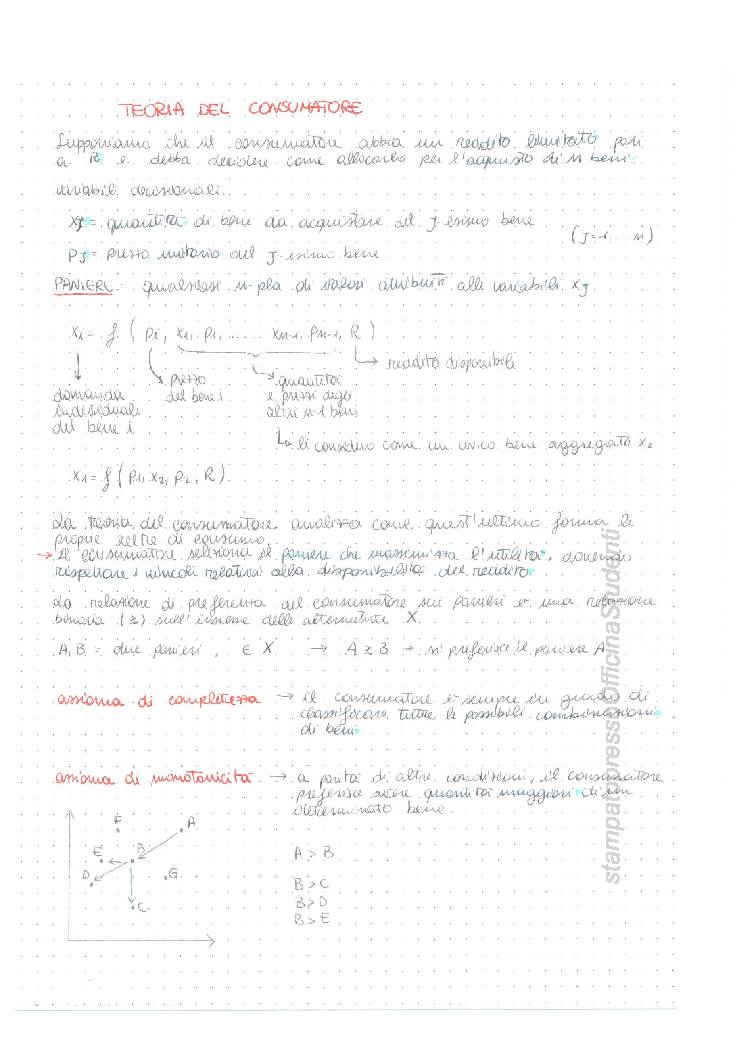 TEORIA DEL CONSUMATORE
Supponiamo che il consumatore abbia un reddito limitato pari
a R e debba decidere come allocarlo per l'acquisto di n beni.
variabili decisionali
xj = quantità di bene da acquistare del j-esimo bene
(j=1... n)
pj = prezzo unitario del j-esimo bene
PANIERE = qualsiasi n-pla di valori attribuiti alle variabili xj
xi = f ( pi, x1, p1, ...... xn-1, pn-1, R )
reddito disponibile
domanda individuale del bene i
prezzo del bene i
quantità e prezzi degli altri n-1 beni
li considero come un unico bene aggregato x2
x1 = f ( p1, x2, p2, R )
La teoria del consumatore analizza come quest'ultimo forma le
proprie scelte di consumo.
→ Il consumatore seleziona il paniere che massimizza l'utilità, dovendo
rispettare i vincoli relativi alla disponibilità del reddito
La relazione di preferenza del consumatore sui panieri è una relazione
binaria (≥) sull'insieme delle alternative X.
A, B = due panieri, ∈ X → A ≥ B → si preferisce il paniere A
assioma di completezza → il consumatore è sempre in grado di
classificare tutte le possibili combinazioni
di beni
assioma di monotonicità → a parità di altre condizioni, il consumatore
preferisce avere quantità maggiori di un
determinato bene.
F
A
E
B
D
G
C
A > B
B > C
B > D
B > E
stampatopressoOfficinaStudenti